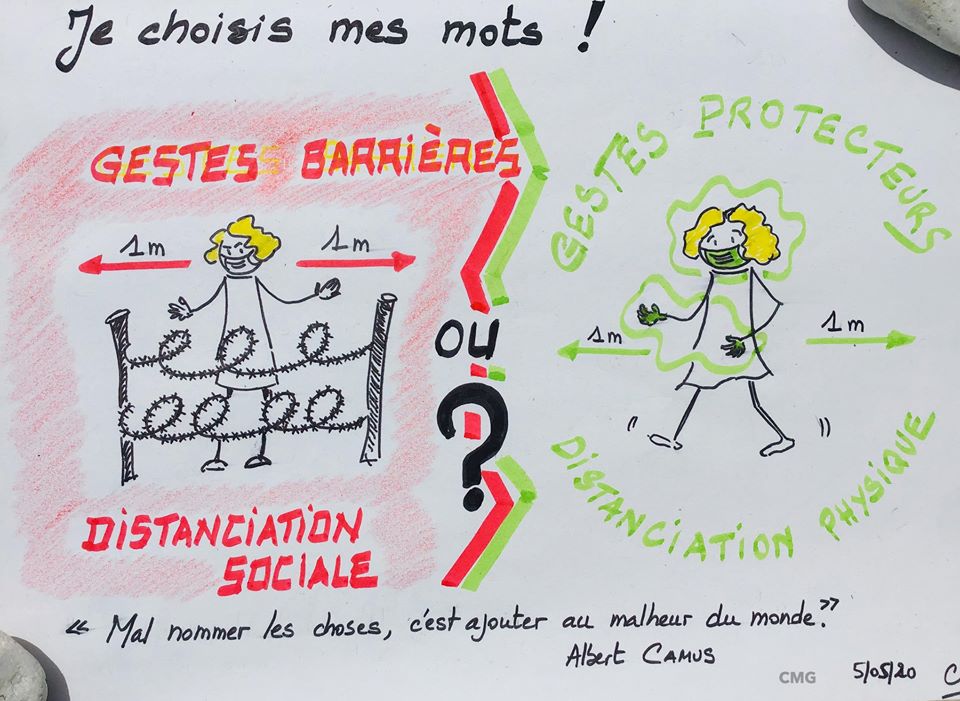 Je choisis mes mots !
GESTES BARRIÈRES
1m
1m
DISTANCIATION
SOCIALE
OU
?
GESTES PROTECTEURS
1m
1m
DISTANCIATION PHYSIQUE
« Mal nommer les choses, c'est ajouter au malheur du monde. »
Albert CAMUS
CMG
5/05/20